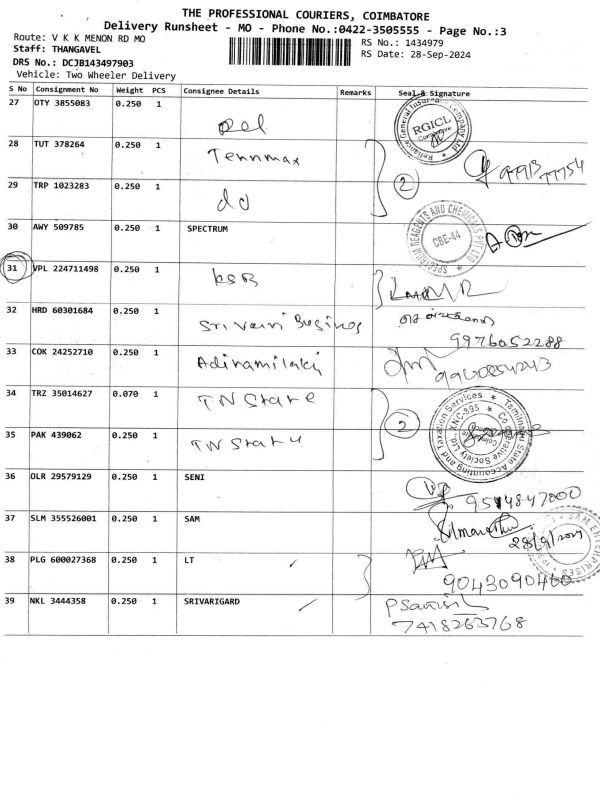 THE PROFESSIONAL COURIERS, COIMBATORE
Delivery Runsheet - MO - Phone No.:0422-3505555 - Page No.:3
Route: V K K MENON RD MO
RS No.: 1434979
Staff: THANGAVEL
RS Date: 28-Sep-2024
DRS No.: DCJB143497903
Vehicle: Two Wheeler Delivery
S No Consignment No Weight PCS Consignee Details Remarks Seal & Signature
27 OTY 3855083 0.250 1
Reliance General Insurance Company Ltd
RGICL
28 TUT 378264 0.250 1 Tennmax
2
29 TRP 1023283 0.250 1 do
30 AWY 509785 0.250 1 SPECTRUM
SPECTRUM REAGENTS AND CHEMICALS PVT LTD
CBE-44
31 VPL 224711498 0.250 1
32 HRD 60301684 0.250 1 Srivari
9976052288
33 COK 24252710 0.250 1
34 TRZ 35014627 0.070 1 TN State
2
Tamilnadu State Accounting and Taxation Services Co operative Society Ltd. XNC-895
35 PAK 439062 0.250 1 TN State
36 OLR 29579129 0.250 1 SENI
37 SLM 355526001 0.250 1 SAM
28/9/2024
SAM ENTERPRISES
38 PLG 600027368 0.250 1 LT
9043090460
39 NKL 3444358 0.250 1 SRIVARIGARD
7418263768